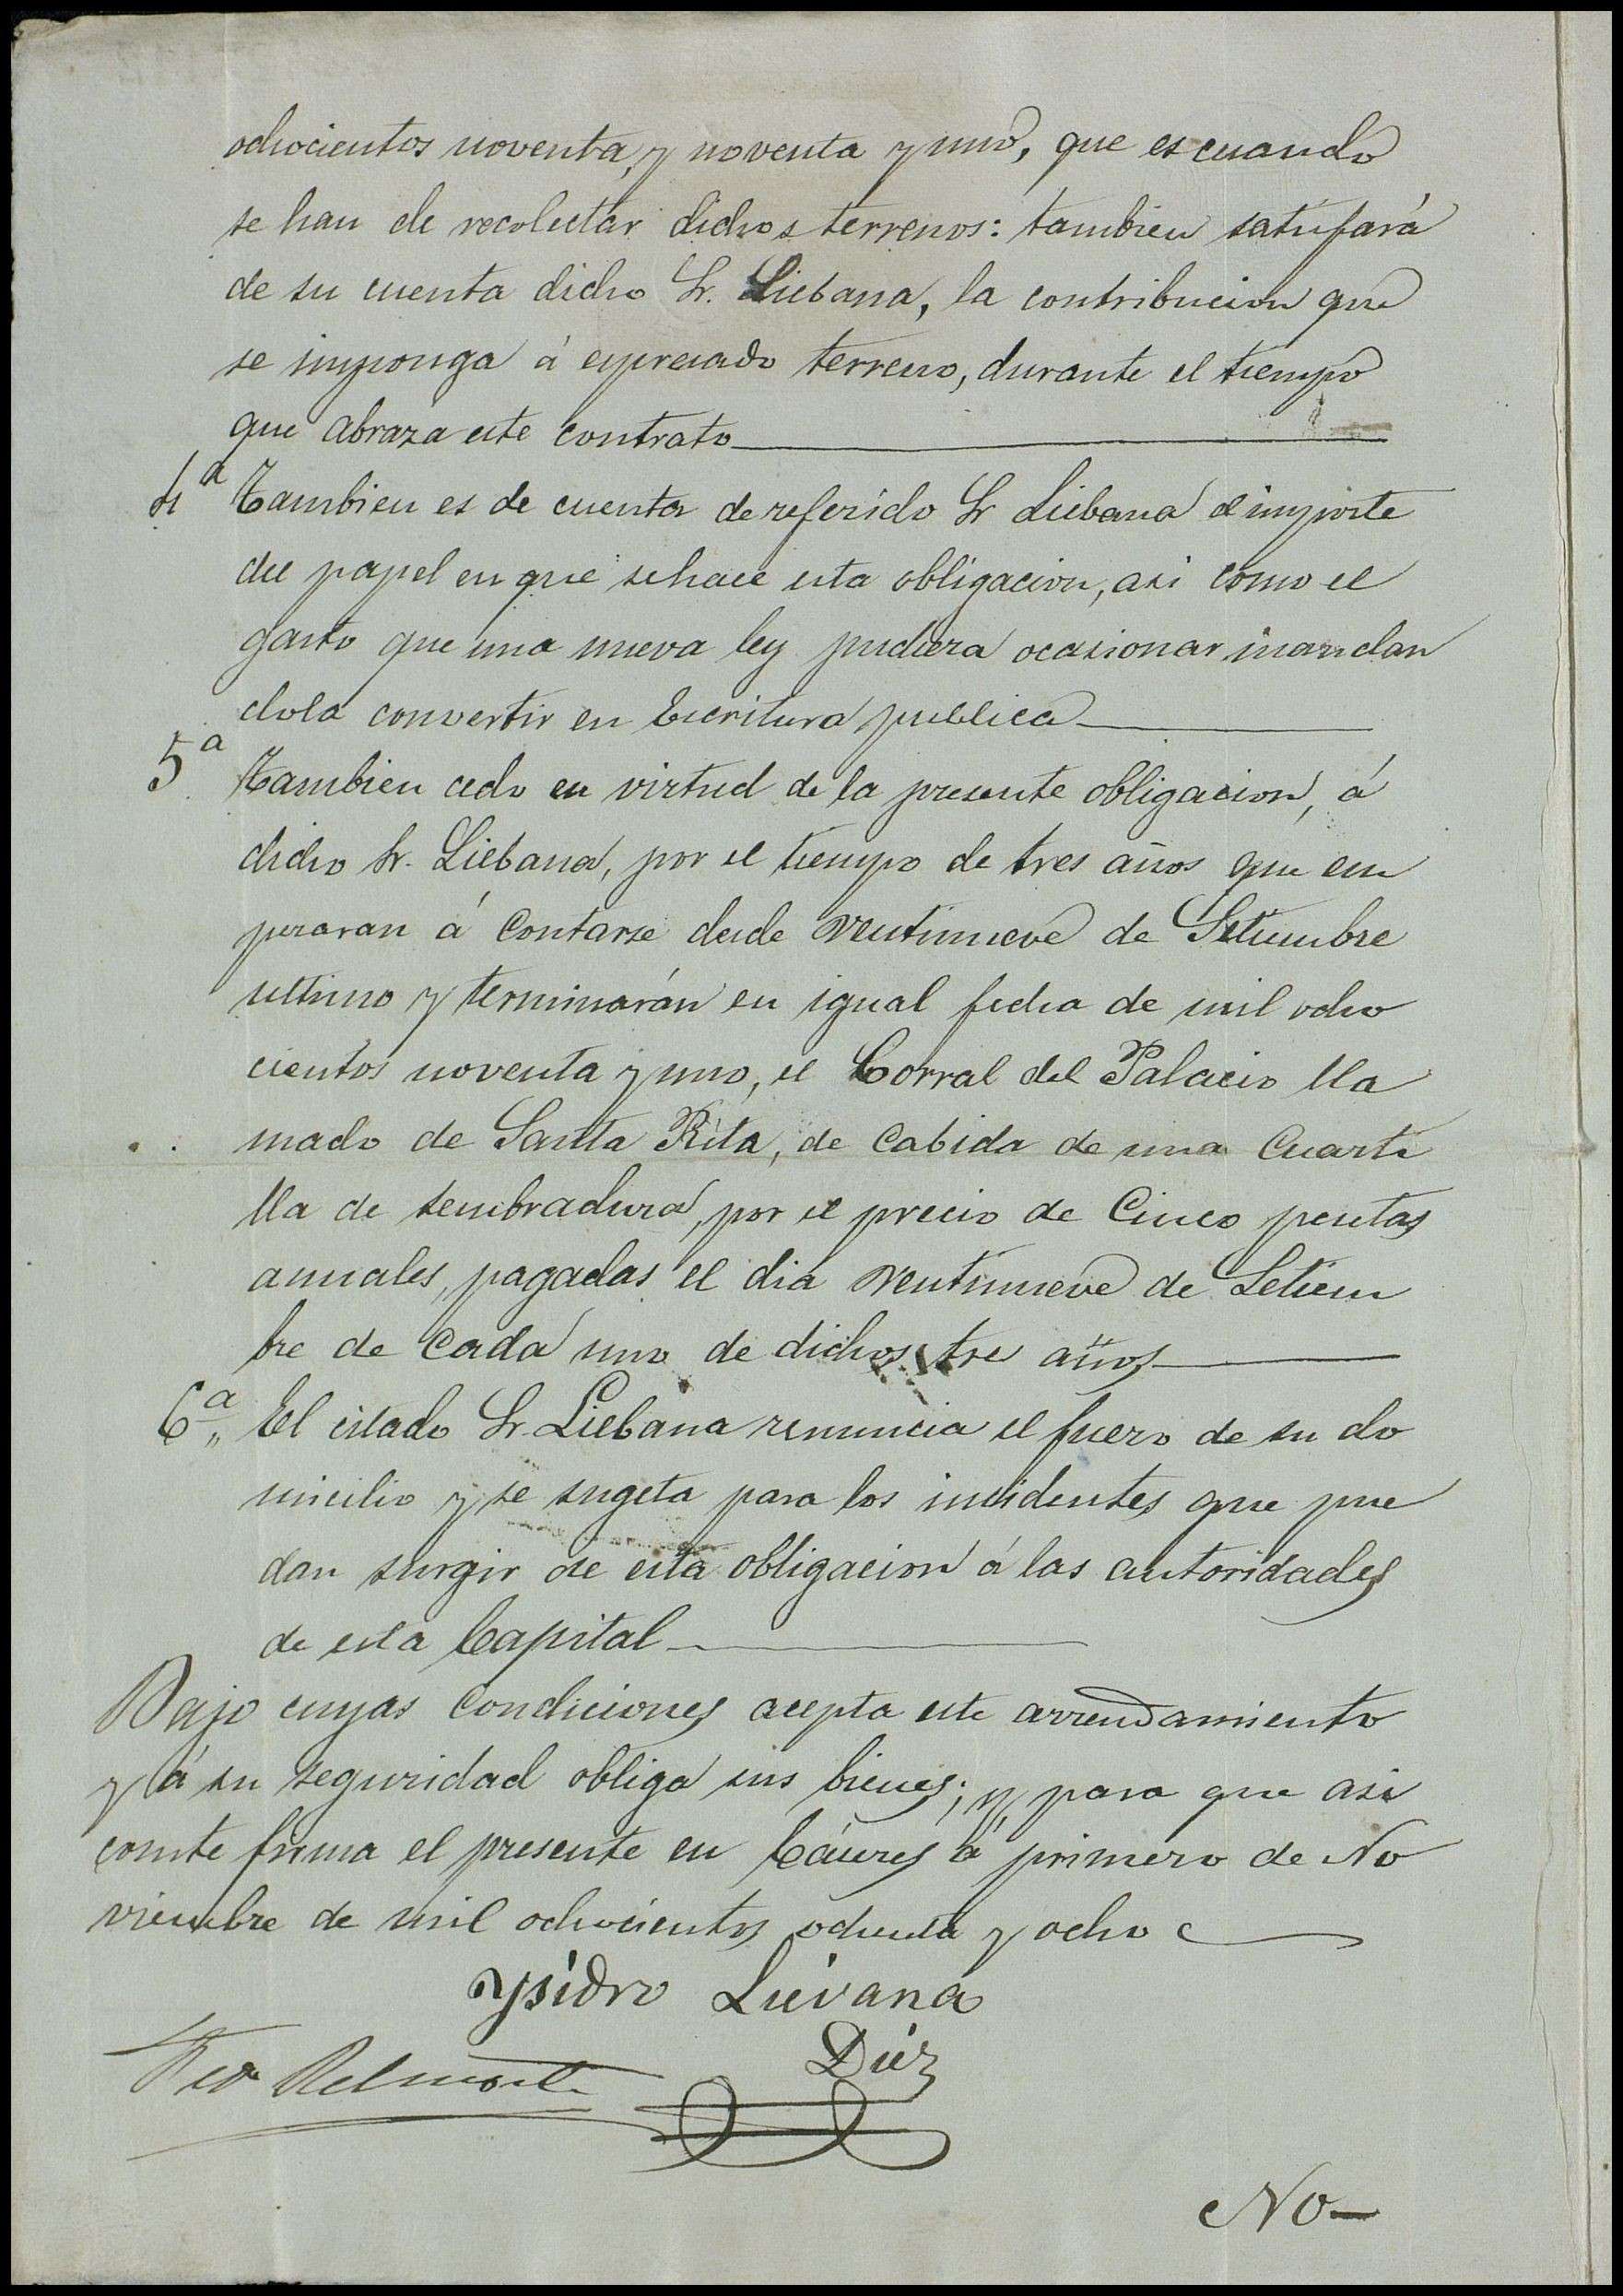 ochocientos noventa, y noventa y uno, que es cuando
se han de recolectar dichos terrenos: tambien satisfará
de su cuenta dicho Sr. Liebana, la contribucion que
se imponga á expresado terreno, durante el tiempo
que abraza este contrato
4ª Tambien es de cuenta de referido Sr Liebana el importe
del papel en que se hace esta obligacion, asi como el
gasto que una nueva ley pudiera ocasionar mandan
dola convertir en Escritura publica
5ª Tambien cedo en virtud de la presente obligacion, á
dicho Sr. Liebana, por el tiempo de tres años que em
pezaran á contarse desde veutinueve de Setiembre
ultimo y terminarán en igual fecha de mil ocho
cientos noventa y uno, el Corral del Palacio lla
mado de Santa Rita, de cabida de una cuarti
lla de sembradura, por el precio de cinco pesetas
anuales, pagadas el dia ventinueve de Setiem
bre de cada uno de dichos tres años
6ª El citado Sr. Liebana renuncia el fuero de su do
micilio y se sugeta para los incidentes que pue
dan surgir de esta obligacion á las autoridades
de esta Capital
Bajo cuyas condiciones acepta este arrendamiento
y á su seguridad obliga sus bienes; y para que asi
conste firma el presente en Cáceres á primero de No
viembre de mil ochocientos ochenta y ocho
Ysidro Lievana
Diez
Belmonte
No